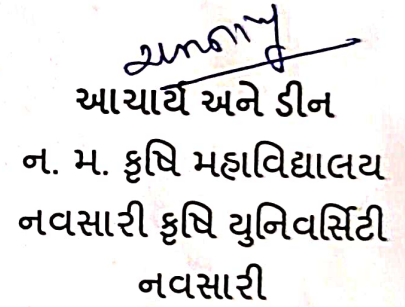 આચાર્ય અને ડીન
ન. મ. કૃષિ મહાવિદ્યાલય
નવસારી કૃષિ યુનિવર્સિટી
નવસારી